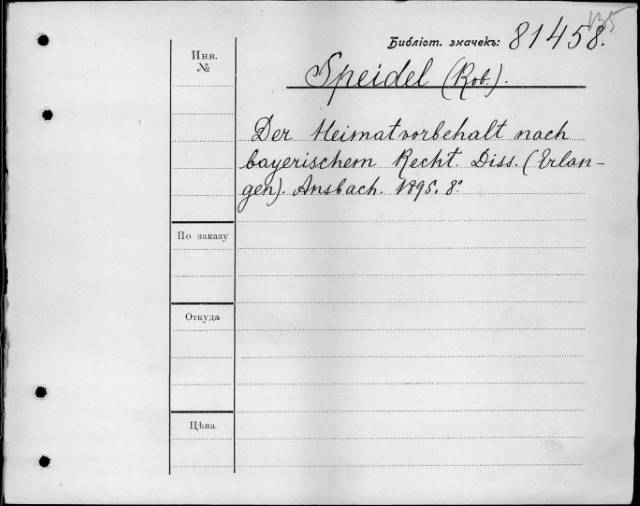 Библіот. значекъ: 81458.
Инв.
№
Speidel (Rob.).
Der Heimatvorbehalt nach
bayerischem Recht. Diss. (Erlan-
gen). Ansbach. 1895. 8°
По заказу
Откуда
Цѣна